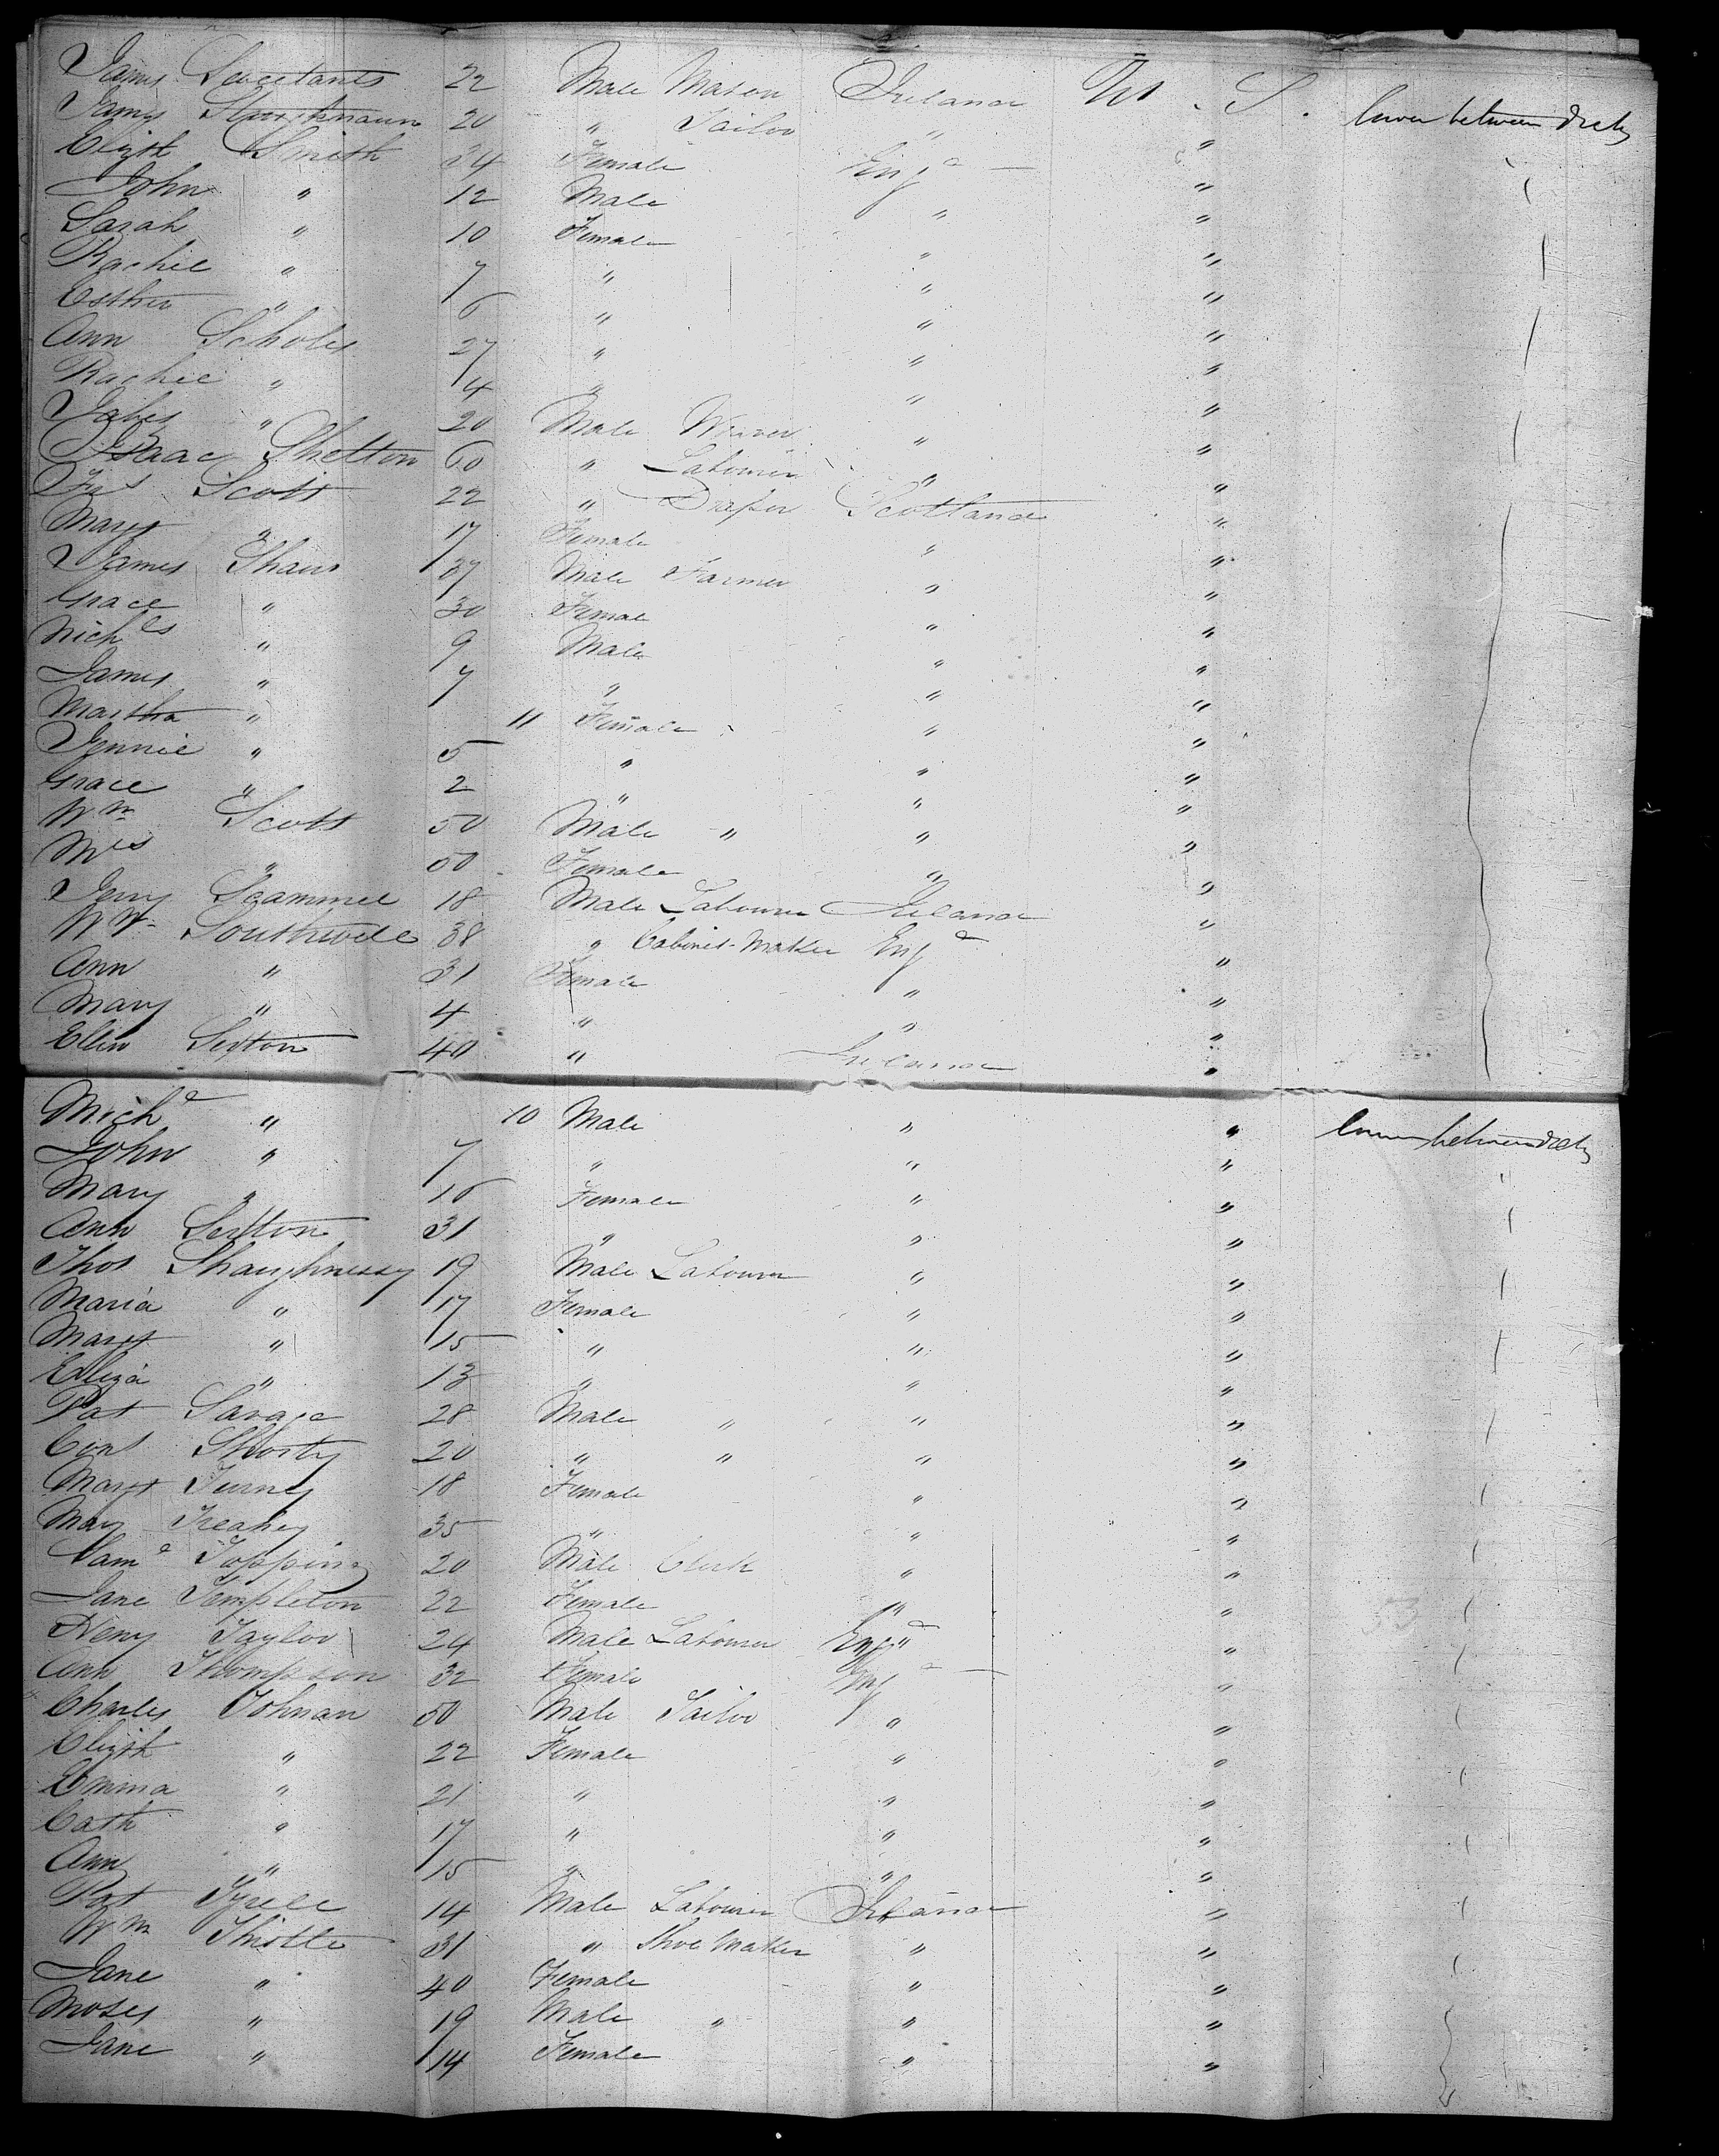 James 22 Male Mason Ireland U S. lower between decks
20 " Tailor " "
Elizth Smith 34 Female Engd "
John " 12 Male " "
Sarah " 10 Female " "
Rachel " 7 " " "
Esther " 6 " " "
Ann Scholes 27 " " "
Rachel " 4 " " "
Jabez " 20 Male Weaver " "
Isaac Shelton 60 " Labourer " "
Jas Scott 22 " Draper Scotland "
Margt " 17 Female " "
James Shaw 37 Male Farmer " "
Grace " 30 Female " "
Nichls " 9 Male " "
James " 7 " " "
Martha " 11 Female " "
Jennie " 5 " " "
Grace " 2 " " "
Wm Scott 50 Male " " "
Mrs " 50 Female " "
Scammel 18 Male Labourer Ireland "
Wm Southwell 38 " Cabinet-Maker Engd "
Ann " 31 Female " "
Mary " 4 " " "
Ellen Sexton 40 " Ireland "
Michl " 10 Male " " lower between decks
John " 7 " " "
Mary " Female " "
Ann Sexton 31 " " "
Thos Shaughnessy 19 Male Labourer " "
Maria " 17 Female " "
Margt " 15 " " "
Eliza " 13 " " "
Pat Savage 28 Male " " "
20 " " " "
Margt 18 Female " "
May Treahey 35 " " "
Saml Topping 20 Male Clerk " "
Jane Templeton 22 Female " "
Heny Taylor 24 Male Labourer Engd "
Ann Thompson 32 Female Engd "
Charles Tolman 50 Male Tailor " "
Elizth " 22 Female " "
Emma " 21 " " "
Cath " 17 " " "
Ann " 15 " " "
Pat Tyrell 14 Male Labourer Ireland "
Wm 31 " Shoe Maker " "
Jane " 40 Female " "
Moses " 19 Male " " "
Jane " 14 Female " "